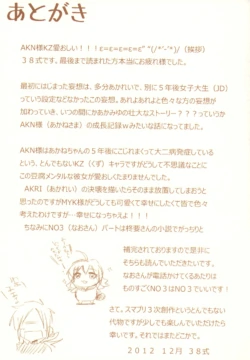 あとがき
AKN様KZ愛おしい!!!ε=ε=ε=ε=ε" "(/*'-'*)/(挨拶)
38式です。最後まで読まれた方本当にお疲れ様でした。
最初にはじまった妄想は、多分あれいで、別に5年後女子大生(JD)
っていう設定などなかったこの妄想。あれよあれよと色々な方の妄想が
加わっていき、いつの間にかあかみゆの壮大なストーリー???っていうか
AKN様(あかねさま)の成長記録wみたいな話になってました。
AKN様はあかねちゃんの5年後にこじれまくって大二病発症している
という、とんでもないKZ(くず)キャラですがどうして不思議なことに
この豆腐メンタルな彼女が愛おしくたまりませんでした。
AKRI(あかれい)の決壊を描いたらそのまま放置してしまおうと
思ったのですがMYK様がどうしても可哀くて幸せにしたくて皆で色々
考えたわけですが…幸せになっちゃえよ!
ちなみにNO3(なおさん)パートは柊要さんの小説でがっちりと
補完されておりますので是非に
そちらも読んでいただきたいです。
なおさんが電話かけてくるあたりは
ものすごくNO3はNO3は!
さて。スマプリ3次創作というとんでもない
代物ですが少しでも楽しんでいただけたら
幸いです。それではまたどこかで。
2012 12月 38式